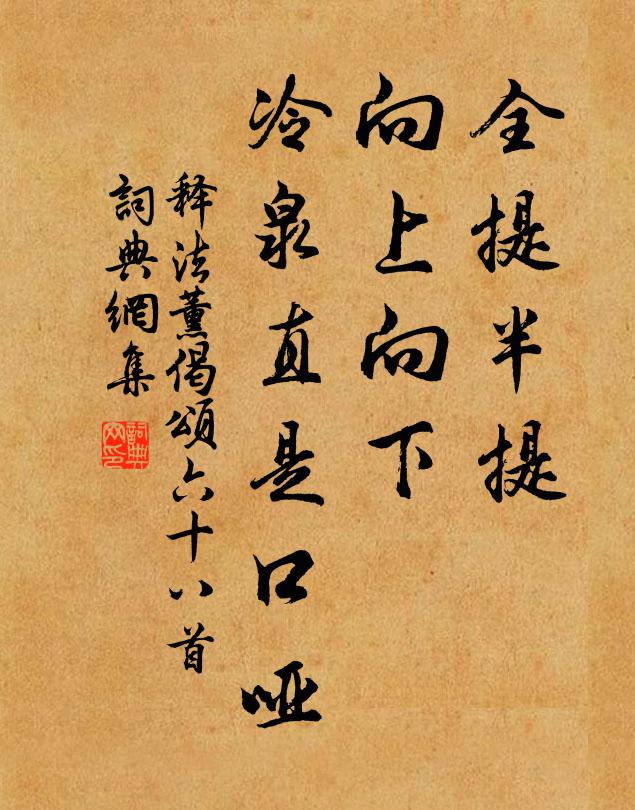 全提半提
向上向下
冷泉直是口哑
释法薰偈頌六十八首
詞典網集
詞典网印